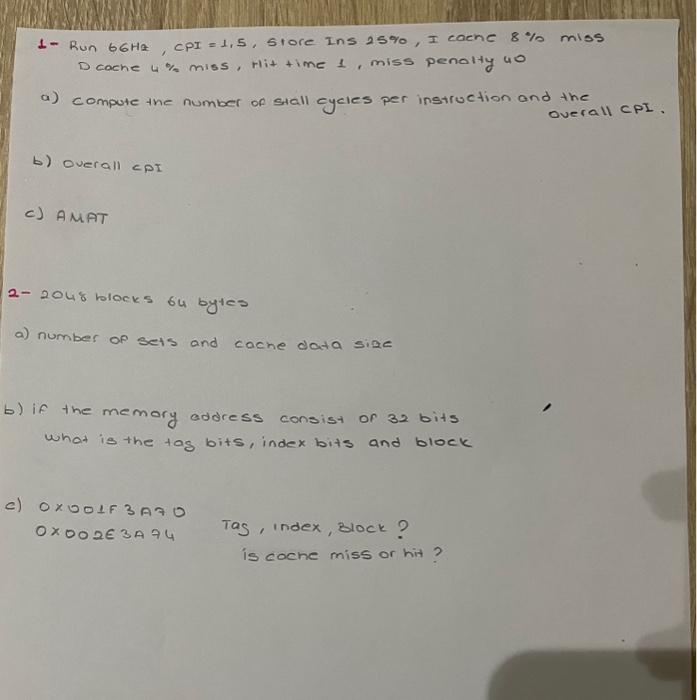 1- Run 6GHz, CPI = 1,5, Store Ins 25%, I cache 8% miss
D cache 4% miss, Hit time 1, miss penalty 40
a) compute the number of stall cycles per instruction and the
overall CPI.
b) overall CPI
c) AMAT
2- 2048 blocks 64 bytes
a) number of sets and cache data size
b) if the memory address consist of 32 bits
what is the tag bits, index bits and block
c) 0x001F3A70
0x002E3A74
Tag, index, Block?
is cache miss or hit?